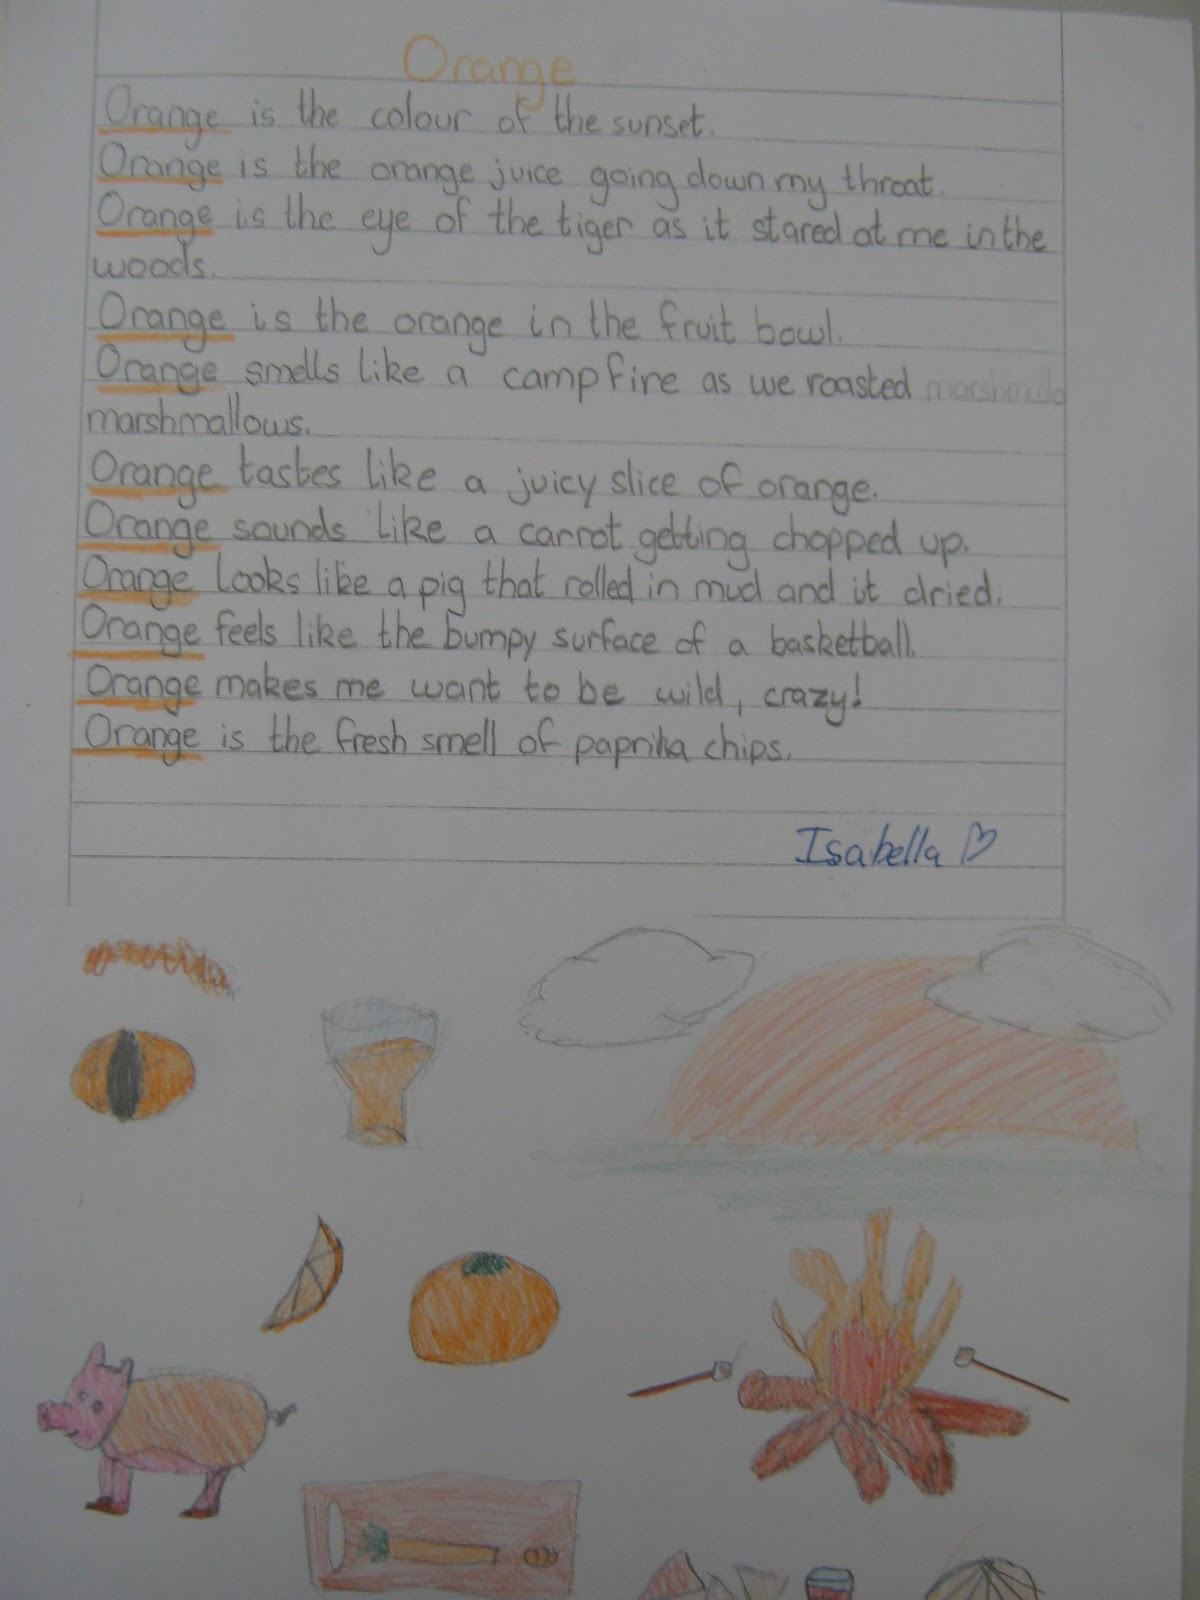 Orange
Orange is the colour of the sunset.
Orange is the orange juice going down my throat.
Orange is the eye of the tiger as it stared at me in the
woods.
Orange is the orange in the fruit bowl.
Orange smells like a campfire as we roasted marshmallo
marshmallows.
Orange tastes like a juicy slice of orange.
Orange sounds like a carrot getting chopped up.
Orange looks like a pig that rolled in mud and it dried.
Orange feels like the bumpy surface of a basketball.
Orange makes me want to be wild, crazy!
Orange is the fresh smell of paprika chips.
Isabella